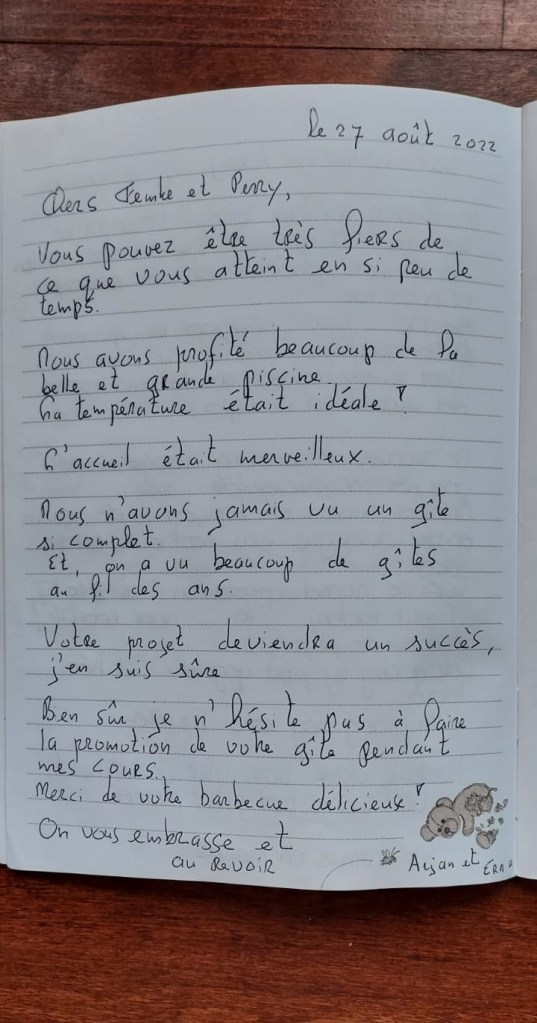 le 27 août 2022
Chers Femke et Perry,
Vous pouvez être très fiers de
ce que vous atteint en si peu de
temps.
Nous avons profité beaucoup de la
belle et grande piscine
La température était idéale !
L'accueil était merveilleux.
Nous n'avons jamais vu un gîte
si complet.
Et, on a vu beaucoup de gîtes
au fil des ans.
Votre projet deviendra un succès,
j'en suis sûre
Ben sûr je n'hésite pas à faire
la promotion de votre gîte pendant
mes cours.
Merci de votre barbecue délicieux !
On vous embrasse et
au Revoir
Arjan et Erna